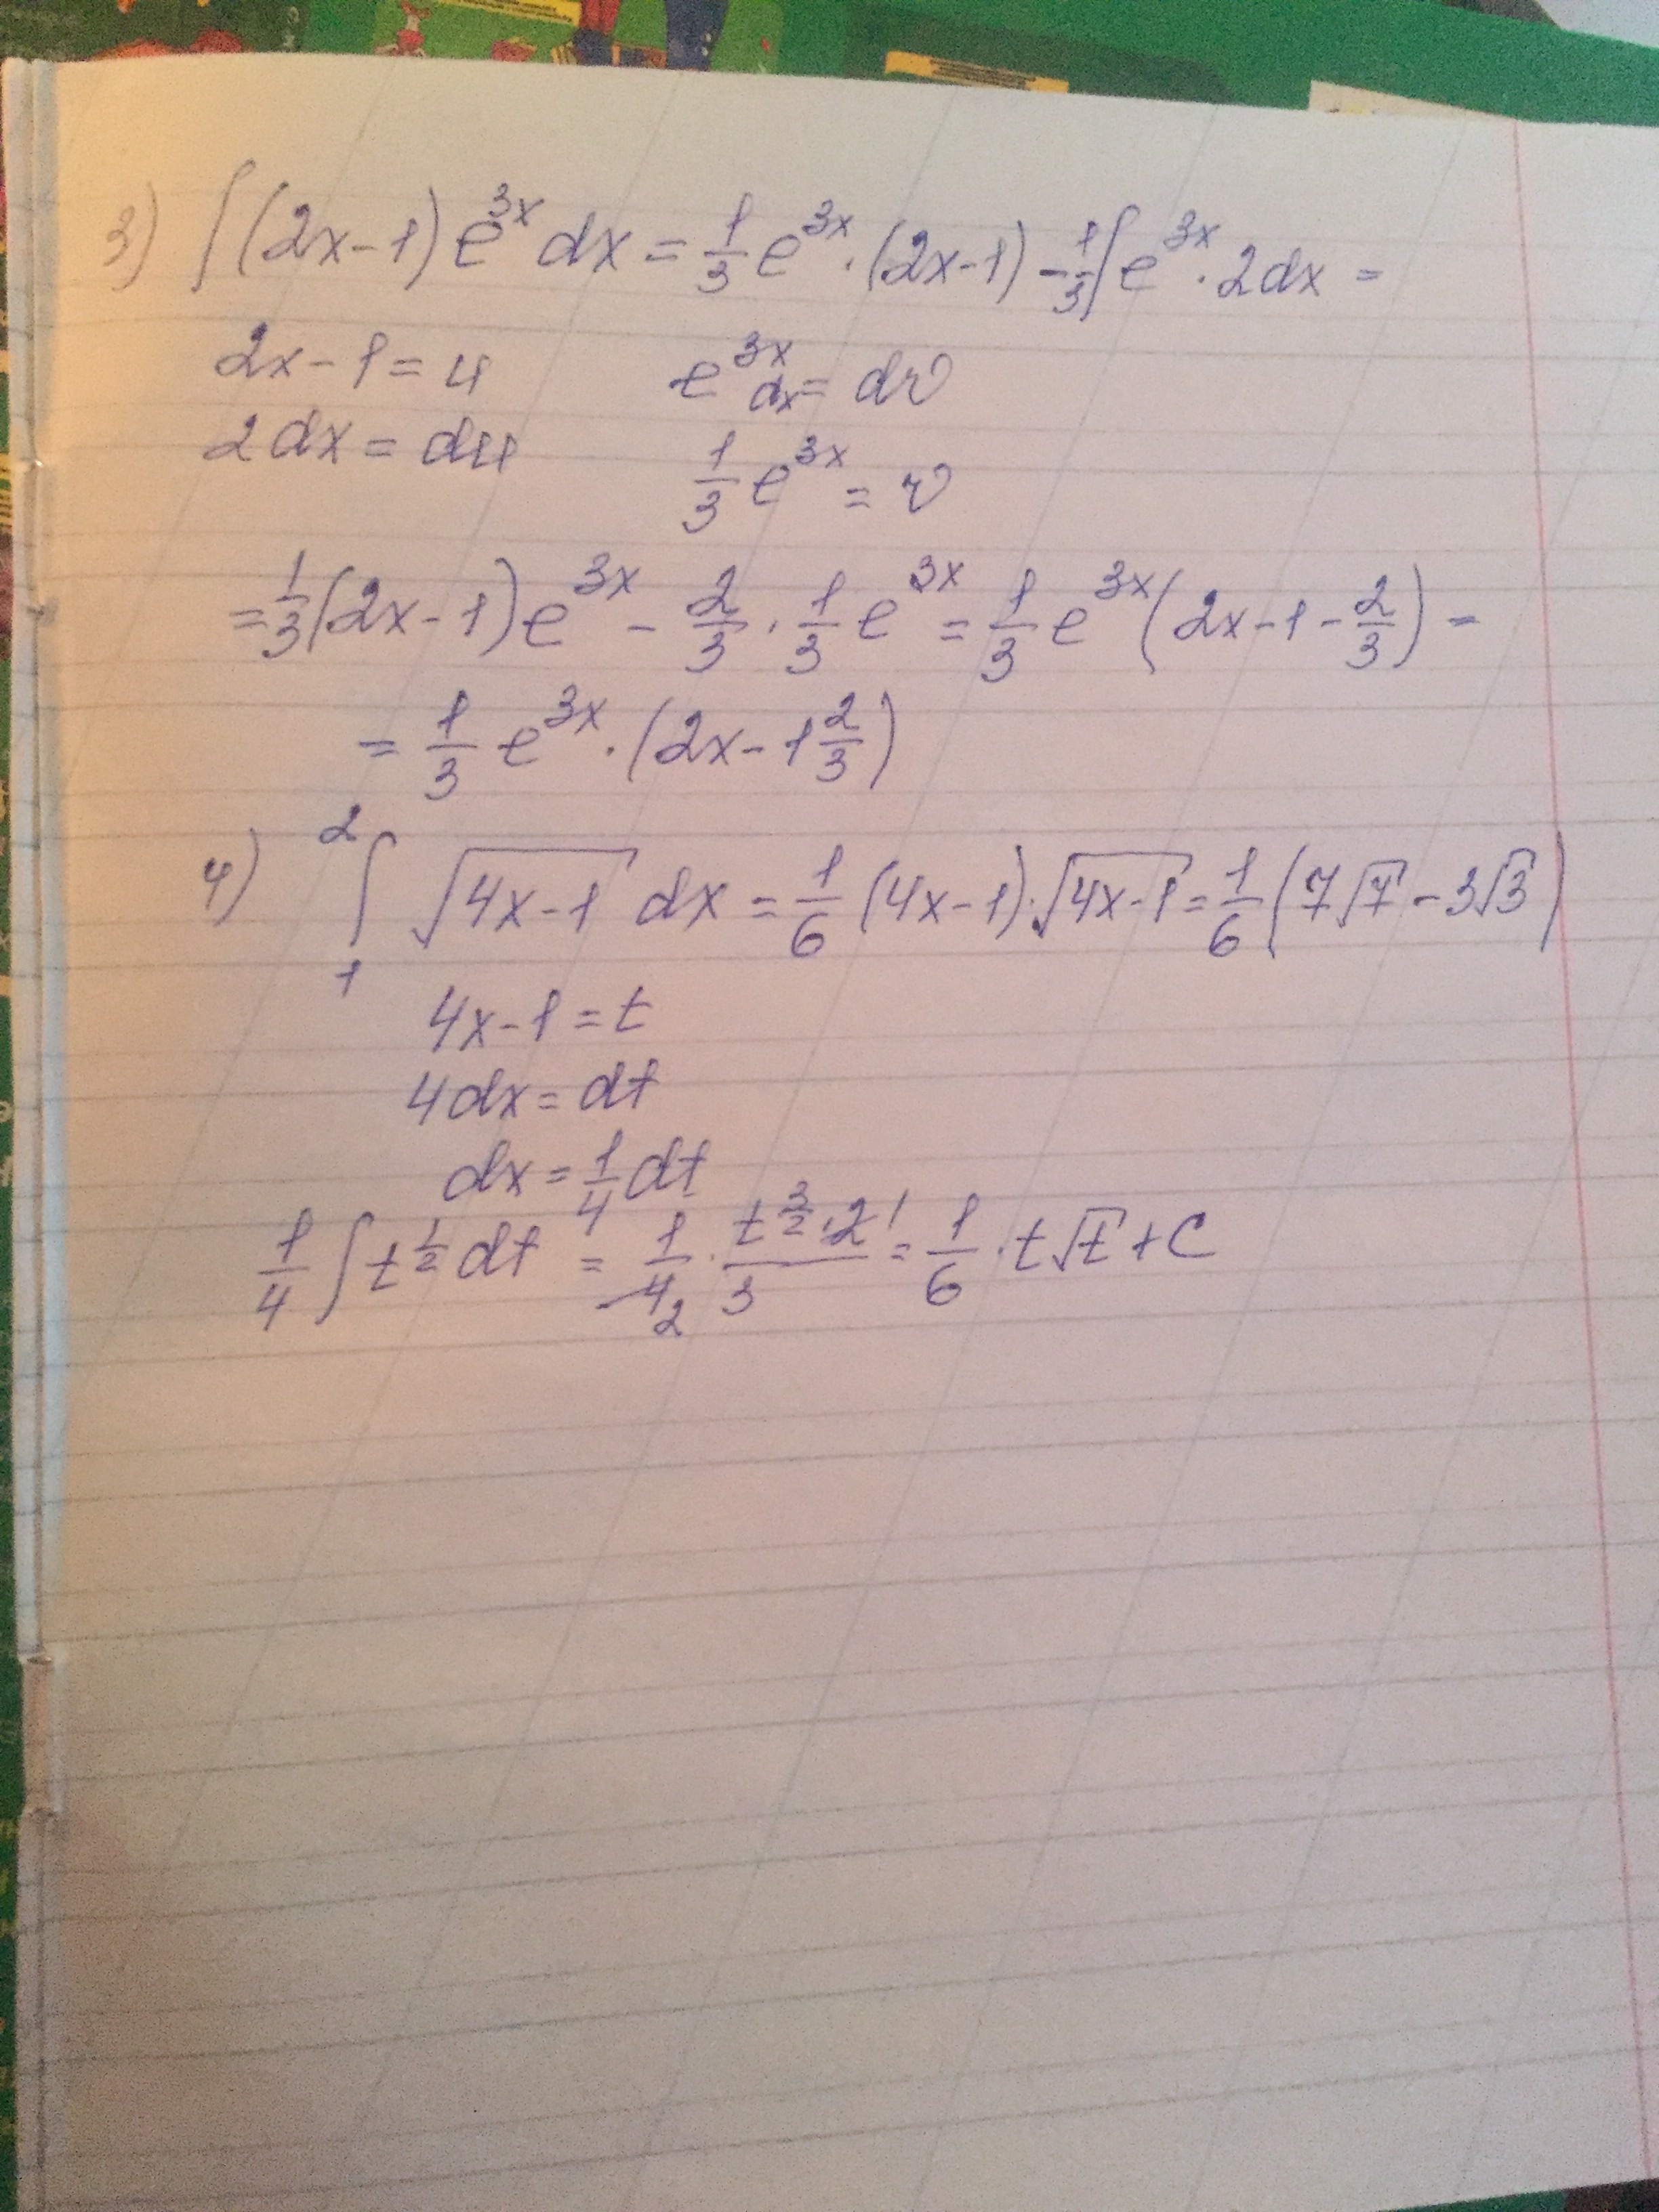 3) ∫(2x-1)e^{3x}dx = \frac{1}{3}e^{3x}·(2x-1) - \frac{1}{3}∫e^{3x}·2dx =
2x-1=u e^{3x}dx = dv
2dx = du \frac{1}{3}e^{3x} = v
= \frac{1}{3}(2x-1)e^{3x} - \frac{2}{3}·\frac{1}{3}e^{3x} = \frac{1}{3}e^{3x}(2x-1-\frac{2}{3}) =
= \frac{1}{3}e^{3x}·(2x-1\frac{2}{3})
4) ∫_{1}^{2} \sqrt{4x-1} dx = \frac{1}{6}(4x-1)·\sqrt{4x-1} = \frac{1}{6}(7\sqrt{7}-3\sqrt{3})
4x-1=t
4dx=dt
dx=\frac{1}{4}dt
\frac{1}{4}∫t^{\frac{1}{2}}dt = \frac{1}{4_2}·\frac{t^{\frac{3}{2}}·2^1}{3} = \frac{1}{6}·t\sqrt{t}+C